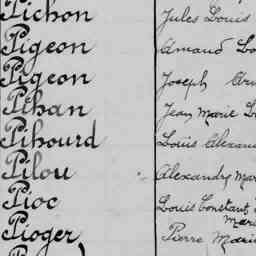 Pichon Jules Louis
Pigeon Amand
Pigeon Joseph
Pihan Jean Marie
Pihourd Louis
Pilou Alexandre
Pioc Louis Constant
Pioger Pierre Marie